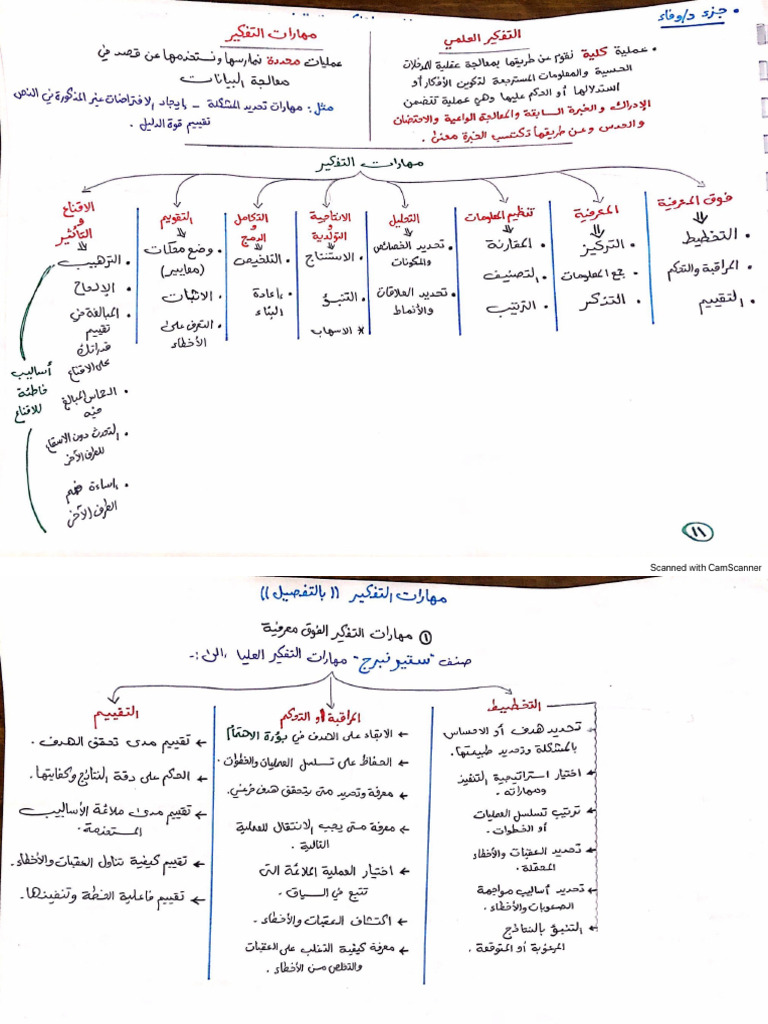 • جزء د/وفاء
التفكير العلمي
• عملية كلية نقوم عن طريقها بمعالجة عقلية للمدخلات
الحسية والمعلومات المسترجعة لتكوين الأفكار أو
استدلالها أو الحكم عليها وهي عملية تتضمن
الإدراك والخبرة السابقة والمعالجة الواعية والاحتضان
والحدس وعن طريقها تكتسب الخبرة معنى.
مهارات التفكير
عمليات محددة نمارسها ونستخدمها عن قصد في
معالجة البيانات
مثل: مهارات تحديد المشكلة - إيجاد الافتراضات غير المذكورة في النص
تقييم قوة الدليل.
مهارات التفكير
فوق المعرفية
• التخطيط
• المراقبة والتحكم
• التقييم
المعرفية
• التركيز
• جمع المعلومات
• التذكر
تنظيم المعلومات
• المقارنة
• التصنيف
• الترتيب
التحليل
• تحديد الخصائص
والمكونات
• تحديد العلاقات
والأنماط
الانتاجية
و
التوليدية
• الاستنتاج
• التنبؤ
* الاسهاب
التكامل
و
الدمج
• التلخيص
• إعادة
البناء
التقويم
• وضع محكات
(معايير)
• الاثبات
• التعرف على
الأخطاء
الاقناع
و
التأثير
• الترهيب
• الإلحاح
• المبالغة في
تقييم
قدراتك
على الاقناع
• الحماس المبالغ
فيه
• التحدث دون الاستماع
للطرف الآخر
• إساءة فهم
الطرف الآخر
أساليب
خاطئة
للاقناع
١١
Scanned with CamScanner
مهارات التفكير ((بالتفصيل))
① مهارات التفكير الفوق معرفية
صنف "ستيرنبرج" مهارات التفكير العليا إلى:-
التخطيط
← تحديد هدف أو الاحساس
بالمشكلة وتحديد طبيعتها.
← اختيار استراتيجية التنفيذ
ومهاراته.
← ترتيب تسلسل العمليات
أو الخطوات.
← تحديد العقبات والأخطاء
المحتملة.
← تحديد أساليب مواجهة
الصعوبات والأخطاء.
← التنبؤ بالنتائج
المرغوبة أو المتوقعة.
المراقبة أو التحكم
← الابقاء على الهدف في بؤرة الاهتمام
← الحفاظ على تسلسل العمليات والخطوات.
← معرفة وتحديد متى يتحقق هدف فرعي.
← معرفة متى يجب الانتقال للعملية
التالية.
← اختيار العملية الملائمة التى
تتبع في السياق.
← اكتشاف العقبات والأخطاء.
← معرفة كيفية التغلب على العقبات
والتخلص من الأخطاء.
التقييم
← تقييم مدى تحقق الهدف.
← الحكم على دقة النتائج وكفايتها.
← تقييم مدى ملائمة الأساليب
المستخدمة.
← تقييم كيفية تناول العقبات والأخطاء.
← تقييم فاعلية الخطة وتنفيذها.